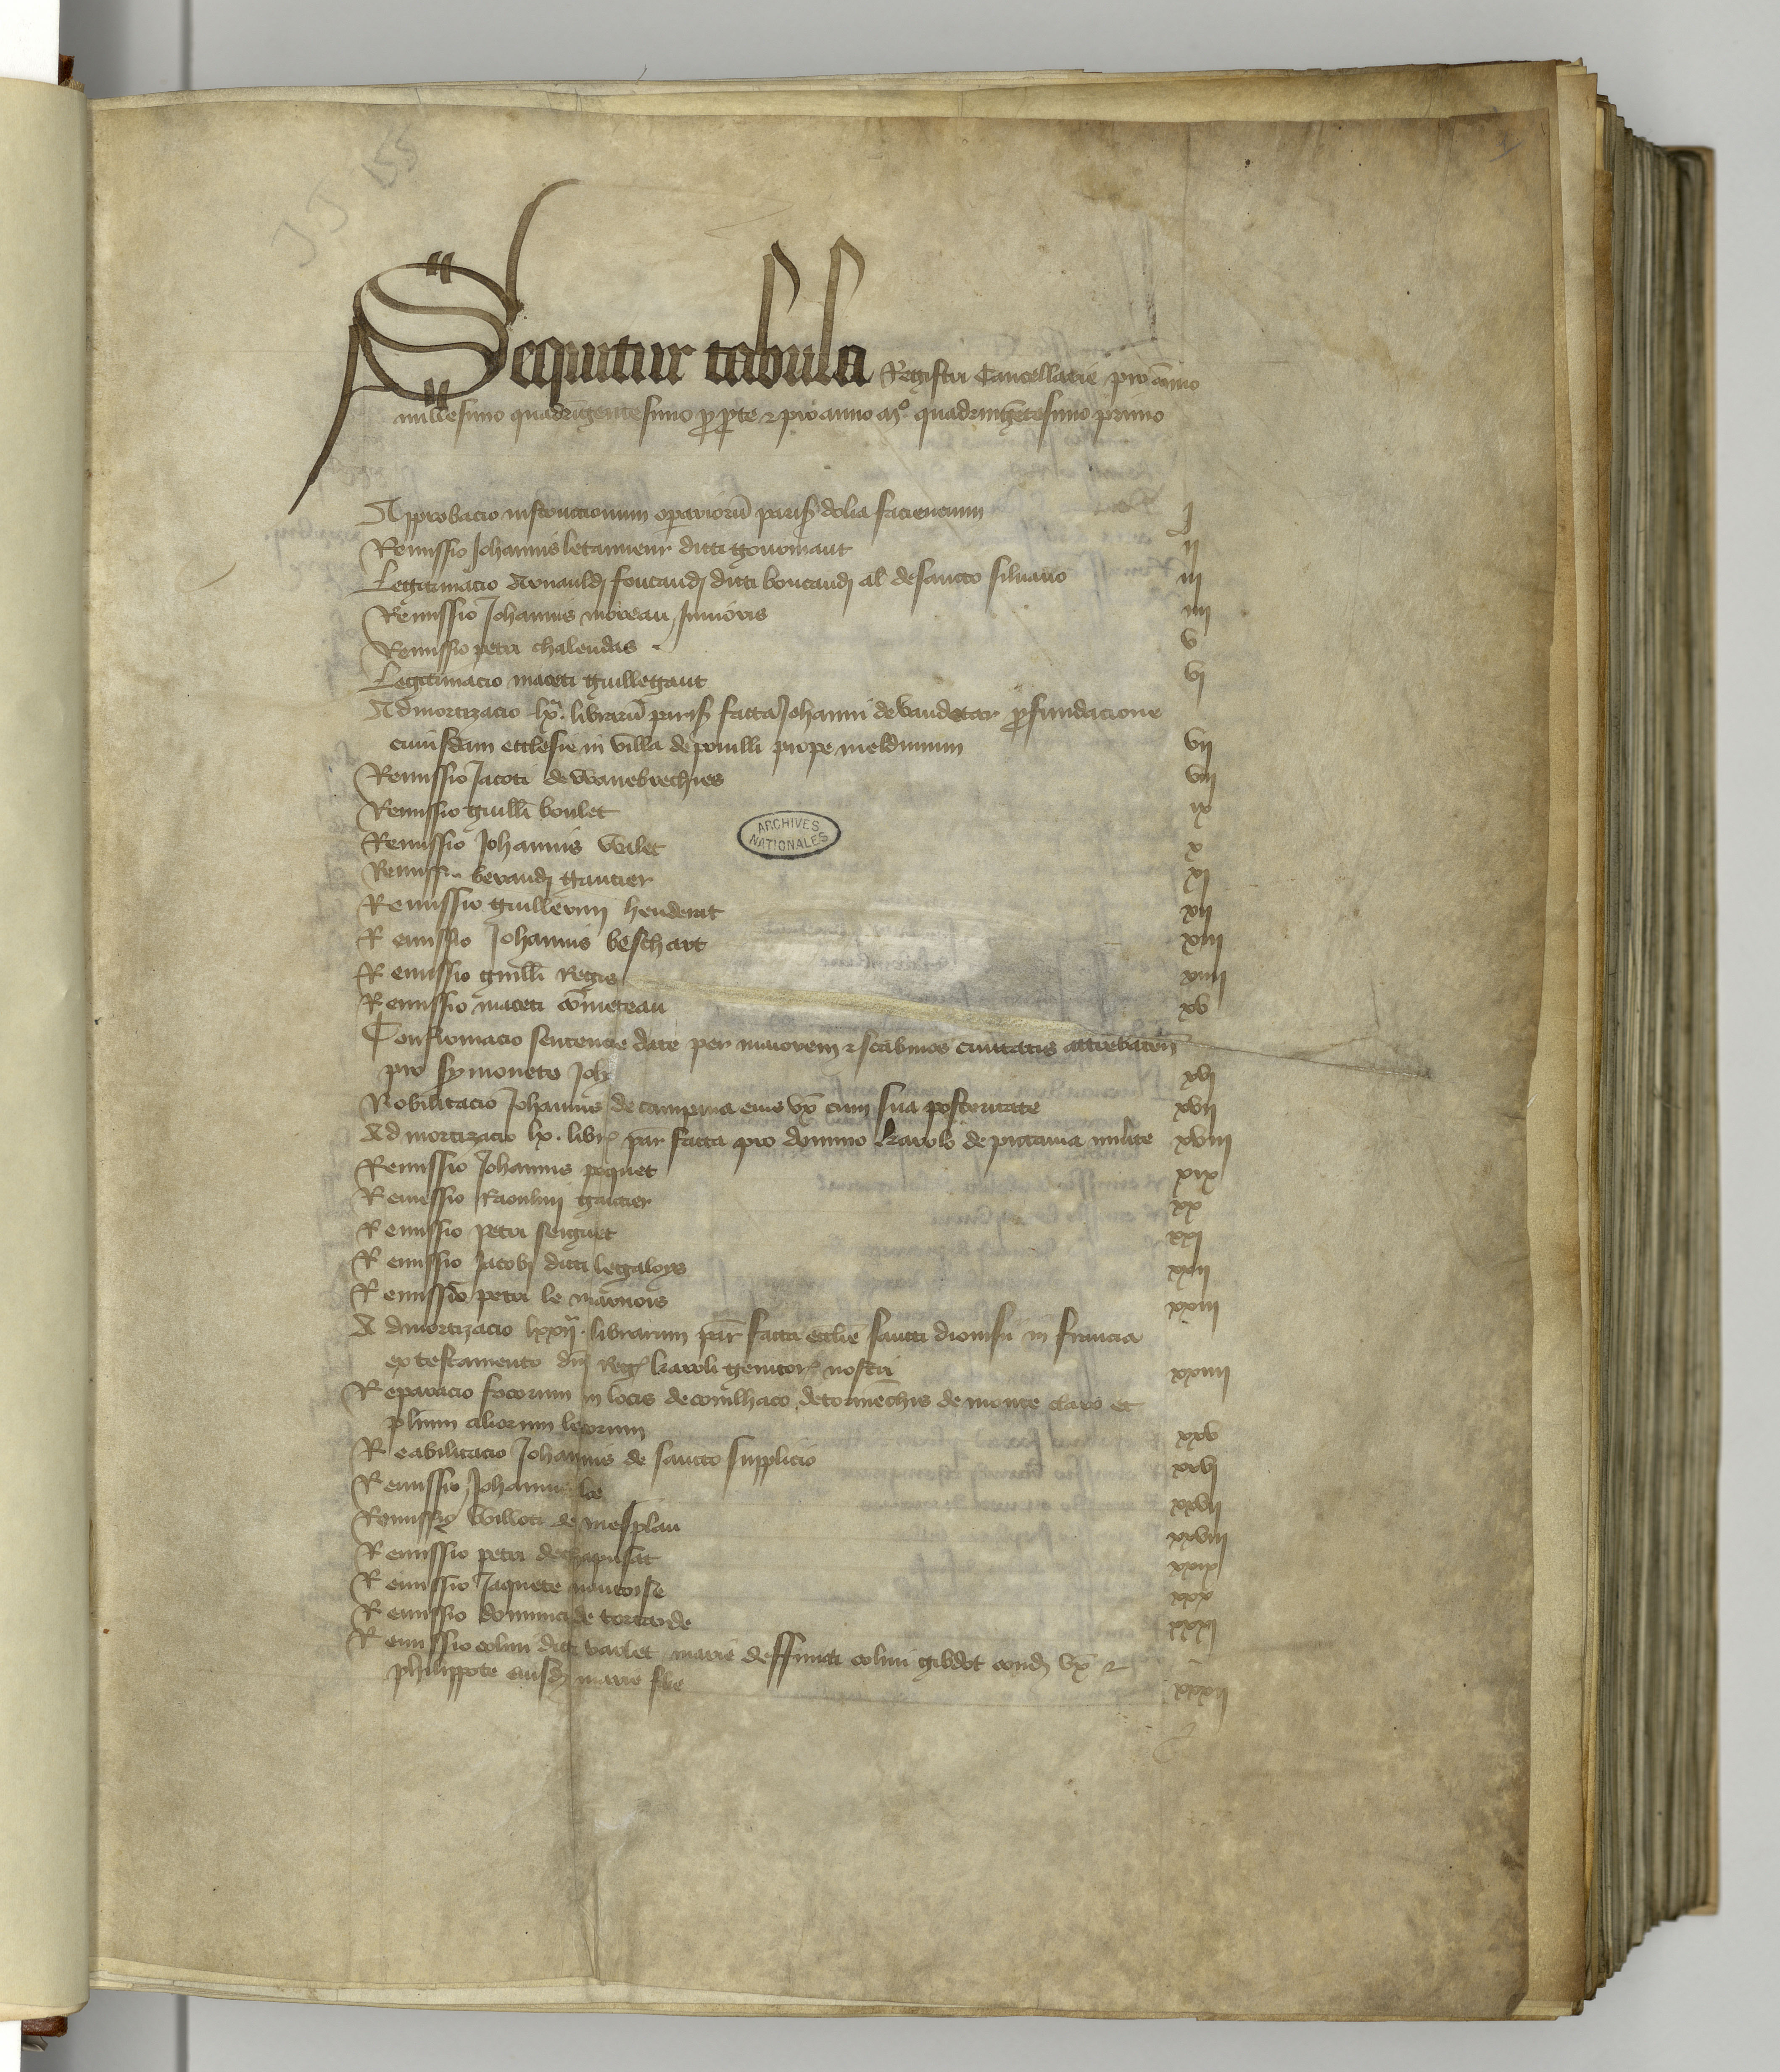 JJ 155
Sequitur tabula Registri Cancellarie pro anno
millesimo quadringentesimo p̄ p̄te ⁊ pro anno mº quadringētesimo primo
Approbacio instructionum operarioꝝ parisꝭ dolia faciencium j
Remissio Johannis letanneur dicti gouvinaut ij
Legitimacio Arnauldj foucaudj dicti boucaudj al̄ de sancto siluano iij
Remissio Johannis moreau Junioris iiij
Remissio petri chalendas v
Legitimacio maceti guillegaut vj
Admortizacio lx. librarū parisꝭ facta Johanni de vaudetar p̄ fundacione
cuiusdam ecclesie in villa de pouilli prope meldunum vij
Remissio Jacoti de wanebrechies viij
Remissio guill̄i boulet ix
Remissio Johannis valet x
Remissio beraudj gautier xj
Remissio guillermj henderat xij
Remissio Johannis beschart xiij
Remissio guill̄i Regis xiiij
Remissio maceti cōmeteau xv
Confirmacio sentencie date per maiorem ⁊ scabinos ciuitatis attrebateñ
pro symoneto Joh xvj
Nobilitacio Johannis de campma eius vx̄ cum sua posteritate xvij
Admortizacio lx. libr̄ par̄ facta pro domino karolo de pictauia milite xviij
Remissio Johannis poquet xix
Remissio Raoulinj gautier xx
Remissio petri seiguet xxj
Remissio Jacobj dicti legaloys xxij
Remissio petri le marnois xxiij
Admortizacio lxxij. librarum par̄ facta ecclīe sancti dionisii in francia
ex testamento dn̄j Regꝭ karoli genitorꝭ nostri xxiiij
Reparacio focorum in locis de cornilhaco de tormēchis de monte claro et
plium aliorum locorum xxv
Reabilitacio Johannis de sancto supplicio xxvj
Remissio Johannis loe xxvij
Remissio Willoti de mesplau xxviij
Remissio petri dechapusat xxix
Remissio Jaquete nautoise xxx
Remissio dominici de torcorde xxxj
Remissio colini dicti varlet marie deffuncti colini gibdot condā vx̄ ⁊
philippote eiusdꝫ marie filie xxxij
ARCHIVES
NATIONALES